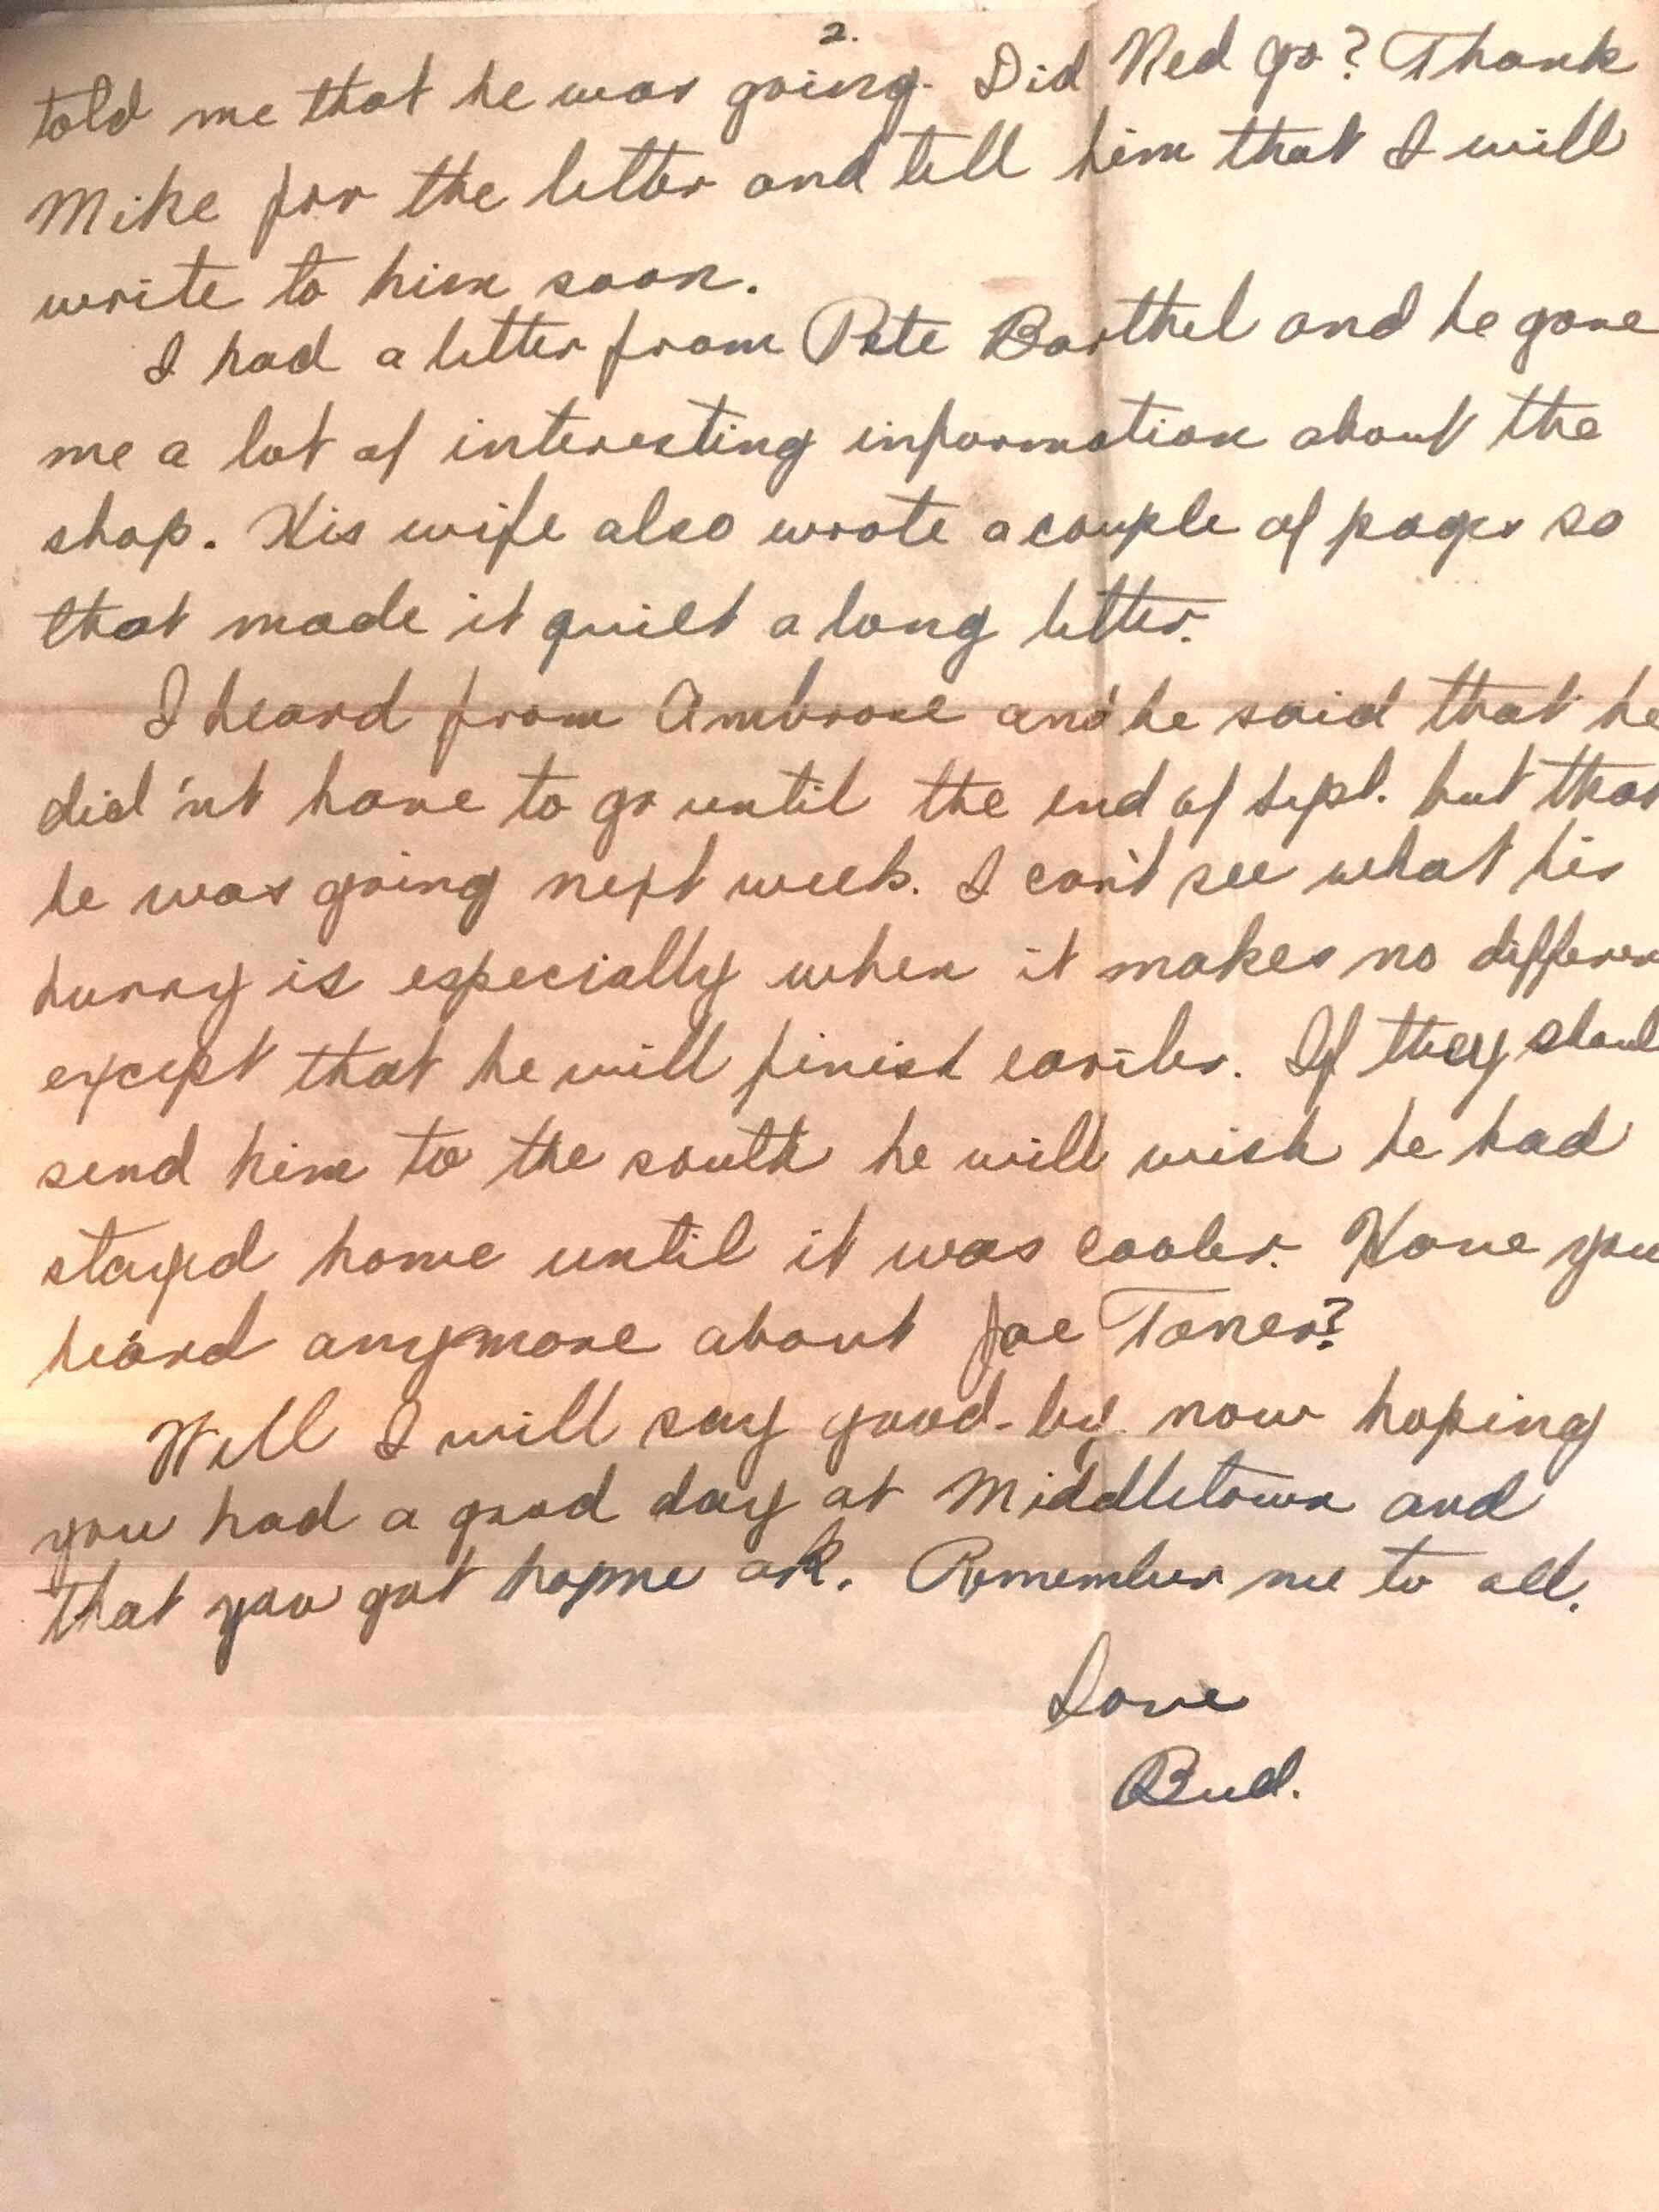 2.
told me that he was going. Did Ned go? Thank
Mike for the letter and tell him that I will
write to him soon.
I had a letter from Pete Barthel and he gave
me a lot of interesting information about the
shop. His wife also wrote a couple of pages so
that made it quiet a long letter.
I heard from Ambrose and he said that he
did'nt have to go until the end of Sept. but that
he was going next week. I can't see what his
hurry is especially when it makes no differen
except that he will finish eariler. If they shoul
send him to the south he will wish he had
stayed home until it was cooler. Have you
heard anymore about Joe Toner?
Well I will say good-by now hoping
you had a good day at Middletown and
that you got home ok. Remember me to all.
Love
Bud.